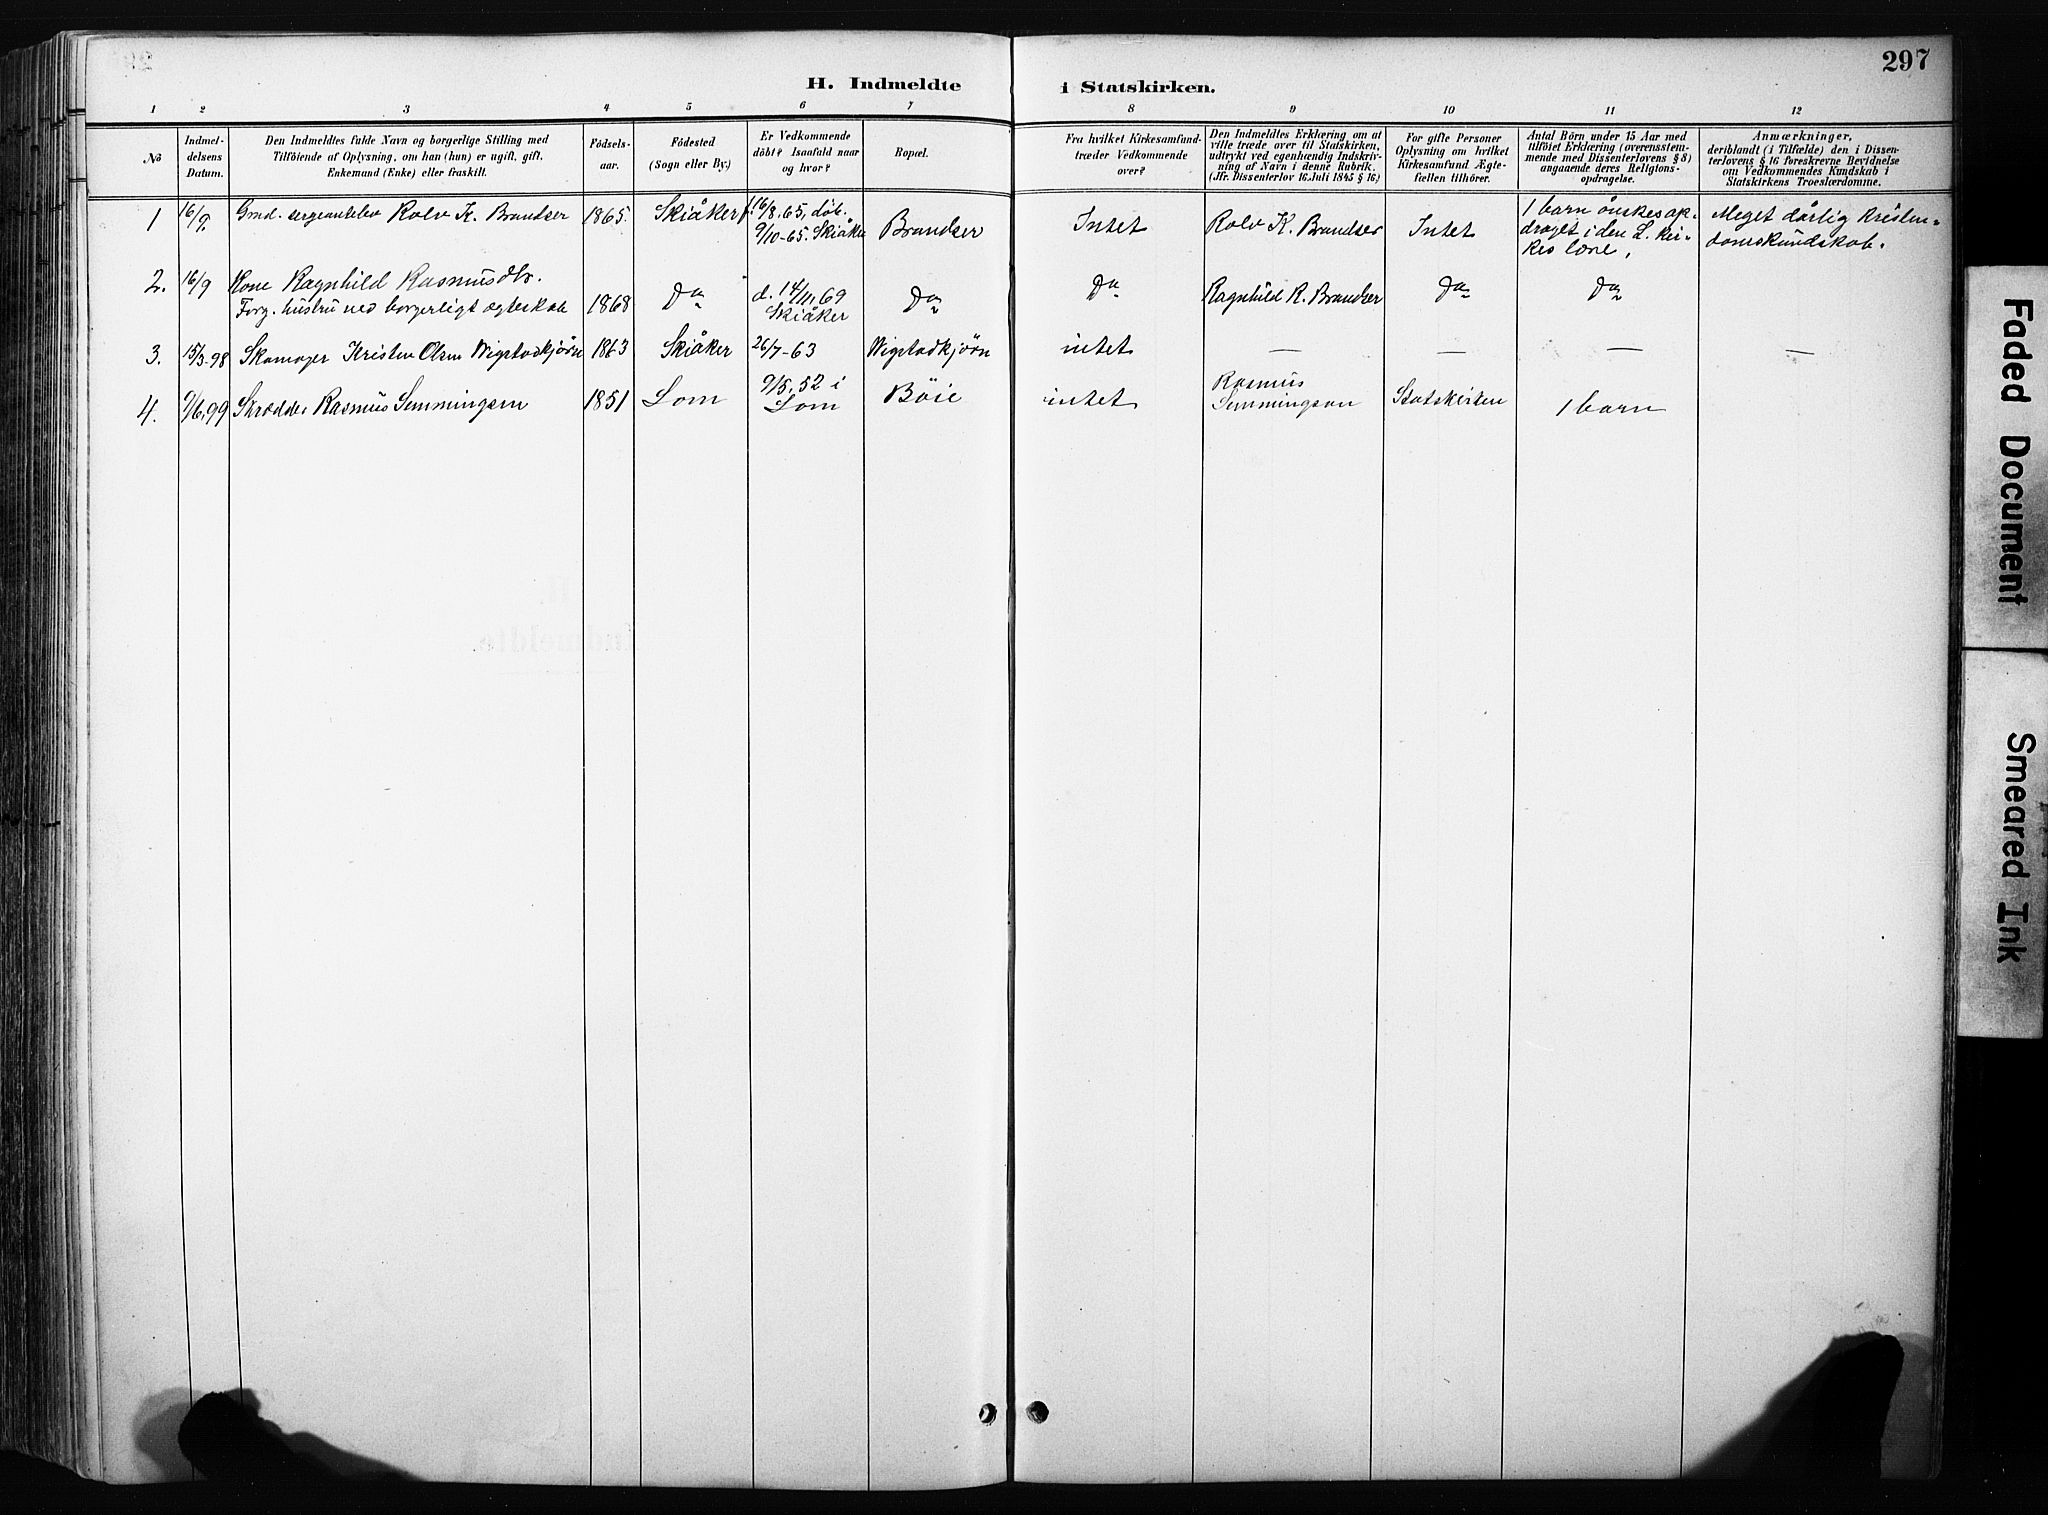 297
H. Indmeldte i Statskirken.
1 2 3 4 5 6 7 8 9 10 11 12
No
Indmel-
delsens
Datum.
Den Indmeldtes fulde Navn og borgerlige Stilling med
Tilföiende af Oplysning, om han (hun) er ugift, gift,
Enkemand (Enke) eller fraskilt.
Födsels-
aar.
Födested
(Sogn eller By.)
Er Vedkommende
döbt? Isaafald naar
og hvor?
Bopæl.
Fra hvilket Kirkesamfund-
træder Vedkommende
over?
Den Indmeldtes Erklæring om at
ville træde over til Statskirken,
udtrykt ved egenhændig Indskriv-
ning af Navn i denne Rubrik.
(Jfr. Dissenterlov 16. Juli 1845 § 16.)
For gifte Personer
Oplysning om hvilket
Kirkesamfund Ægte-
fællen tilhörer.
Antal Börn under 15 Aar med
tilföiet Erklæring (overensstem-
mende med Dissenterlovens § 8)
angaaende deres Religions-
opdragelse.
Anmærkninger,
deriblandt (i Tilfælde) den i Dissen-
terlovens § 16 foreskrevne Bevidnelse
om Vedkommendes Kundskab i
Statskirkens Troeslærdomme.
1 16/9 Grad. sergeantelev Rolv K. Brandser 1865. Skiåker f. 16/8.65, döb. 9/10-65. Skiåker Brandser Intet Rolv K. Brandser Intet 1 barn önskes op-
draget i den L. kir-
kes lære. Meget dårlig kristen-
domskundskab.
2. 16/9 Kone Ragnhild Rasmusdtr.
Forg. hustru ved borgerligt ægteskab 1868 Do d. 14/11 69
Skiåker Do Do Ragnhild R. Brandser Do Do
3. 15/3-98 Skomager Kristen Olsen Wigstadkjørn 1863 Skiåker 26/7-63 Wigstadkjørn intet — — — —
4. 9/6.99 Skrædder Rasmus Semmingsen 1851 Lom 9/5.52 i
Lom Böie intet Rasmus
Semmingson Statskirken 1 barn
H.
Indmeldte.
Faded Document
Smeared Ink